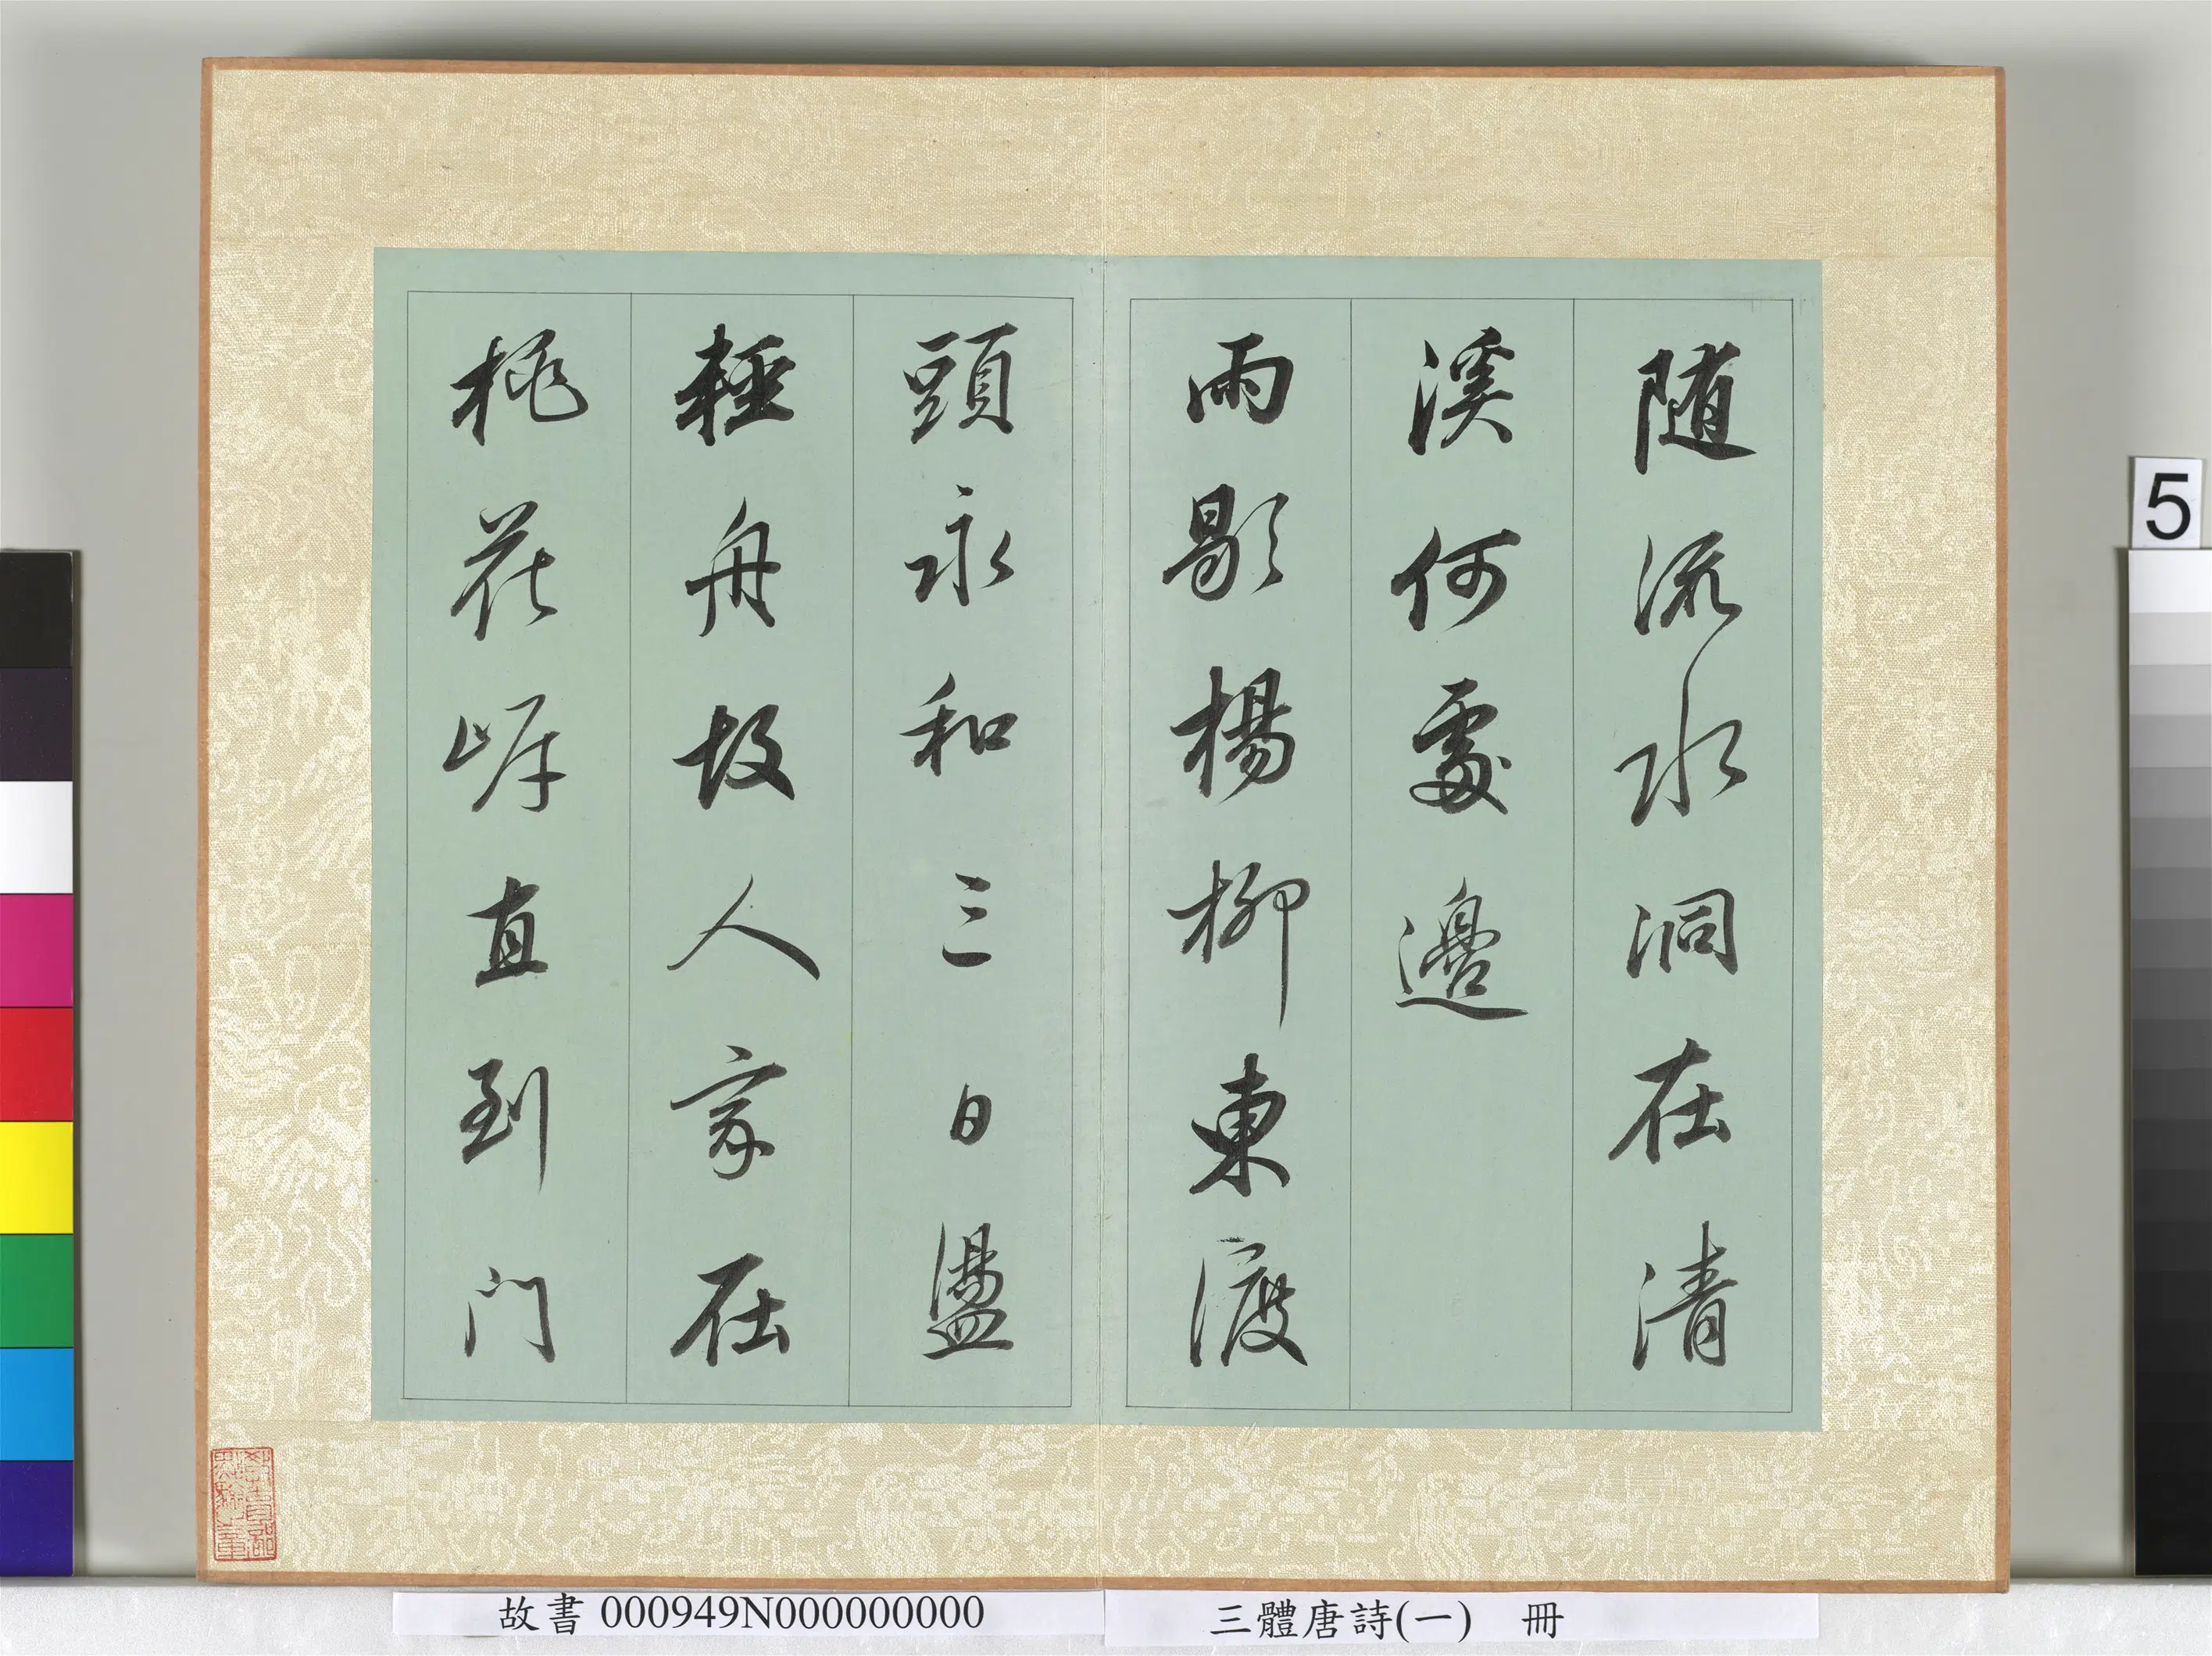 随流水洞在清
溪何處邊
雨歇楊柳東渡
頭永和三日盪
輕舟故人家在
桃花岸直到门
5
故書 000949N000000000
三體唐詩(一) 冊